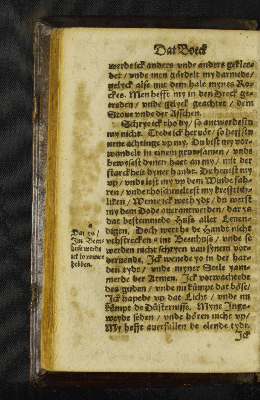 Dat Boeck
werde ick anders vnde anders geklee-
det / vnde men gördelt my darmede /
gelyck alse mit dem hale mynes Ro-
ckes. Men hefft my in den Dreck ge-
treden / vnde gelyck geachtet / dem
Stoue vnde der Asschen.
Schrye ick tho dy / so antwerdestu
my nicht. Trede ick hervör / so heffstu
nene achtinge vp my. Du bist my vor-
wandelt in einen gruwsamen / vnde
bewysest dynen haet an my / mit der
starckheit dyner handt. Du heuest my
vp / vnde lest my vp dem Winde fah-
ren / vnde thosmeltest my krefftich-
liken / Wente ick weth ydt / du werst
my dem Dode auerantwerden / dar ys
dat bestemmede Huss aller Leuen-
digen. Doch wert he de Handt nicht
vthstrecken int Beenhuss / vnde se
werden nicht schryen van synem vor-
deruende. Ick wenede yo in der har-
den tydt / vnde myner Seele yam-
merde der Armen. Ick vorwachtede
des guden / vnde nu kümpt dat böse /
Ick hapede vp dat Licht / vnde nu
kümpt de Düsternisse. Myne Inge-
weyde seden / vnde hören nicht vp /
My hefft auerfallen de elende tydt.
Ick
a
Dat ys /
Im Been-
huse werde
ick so rouwe
hebben.